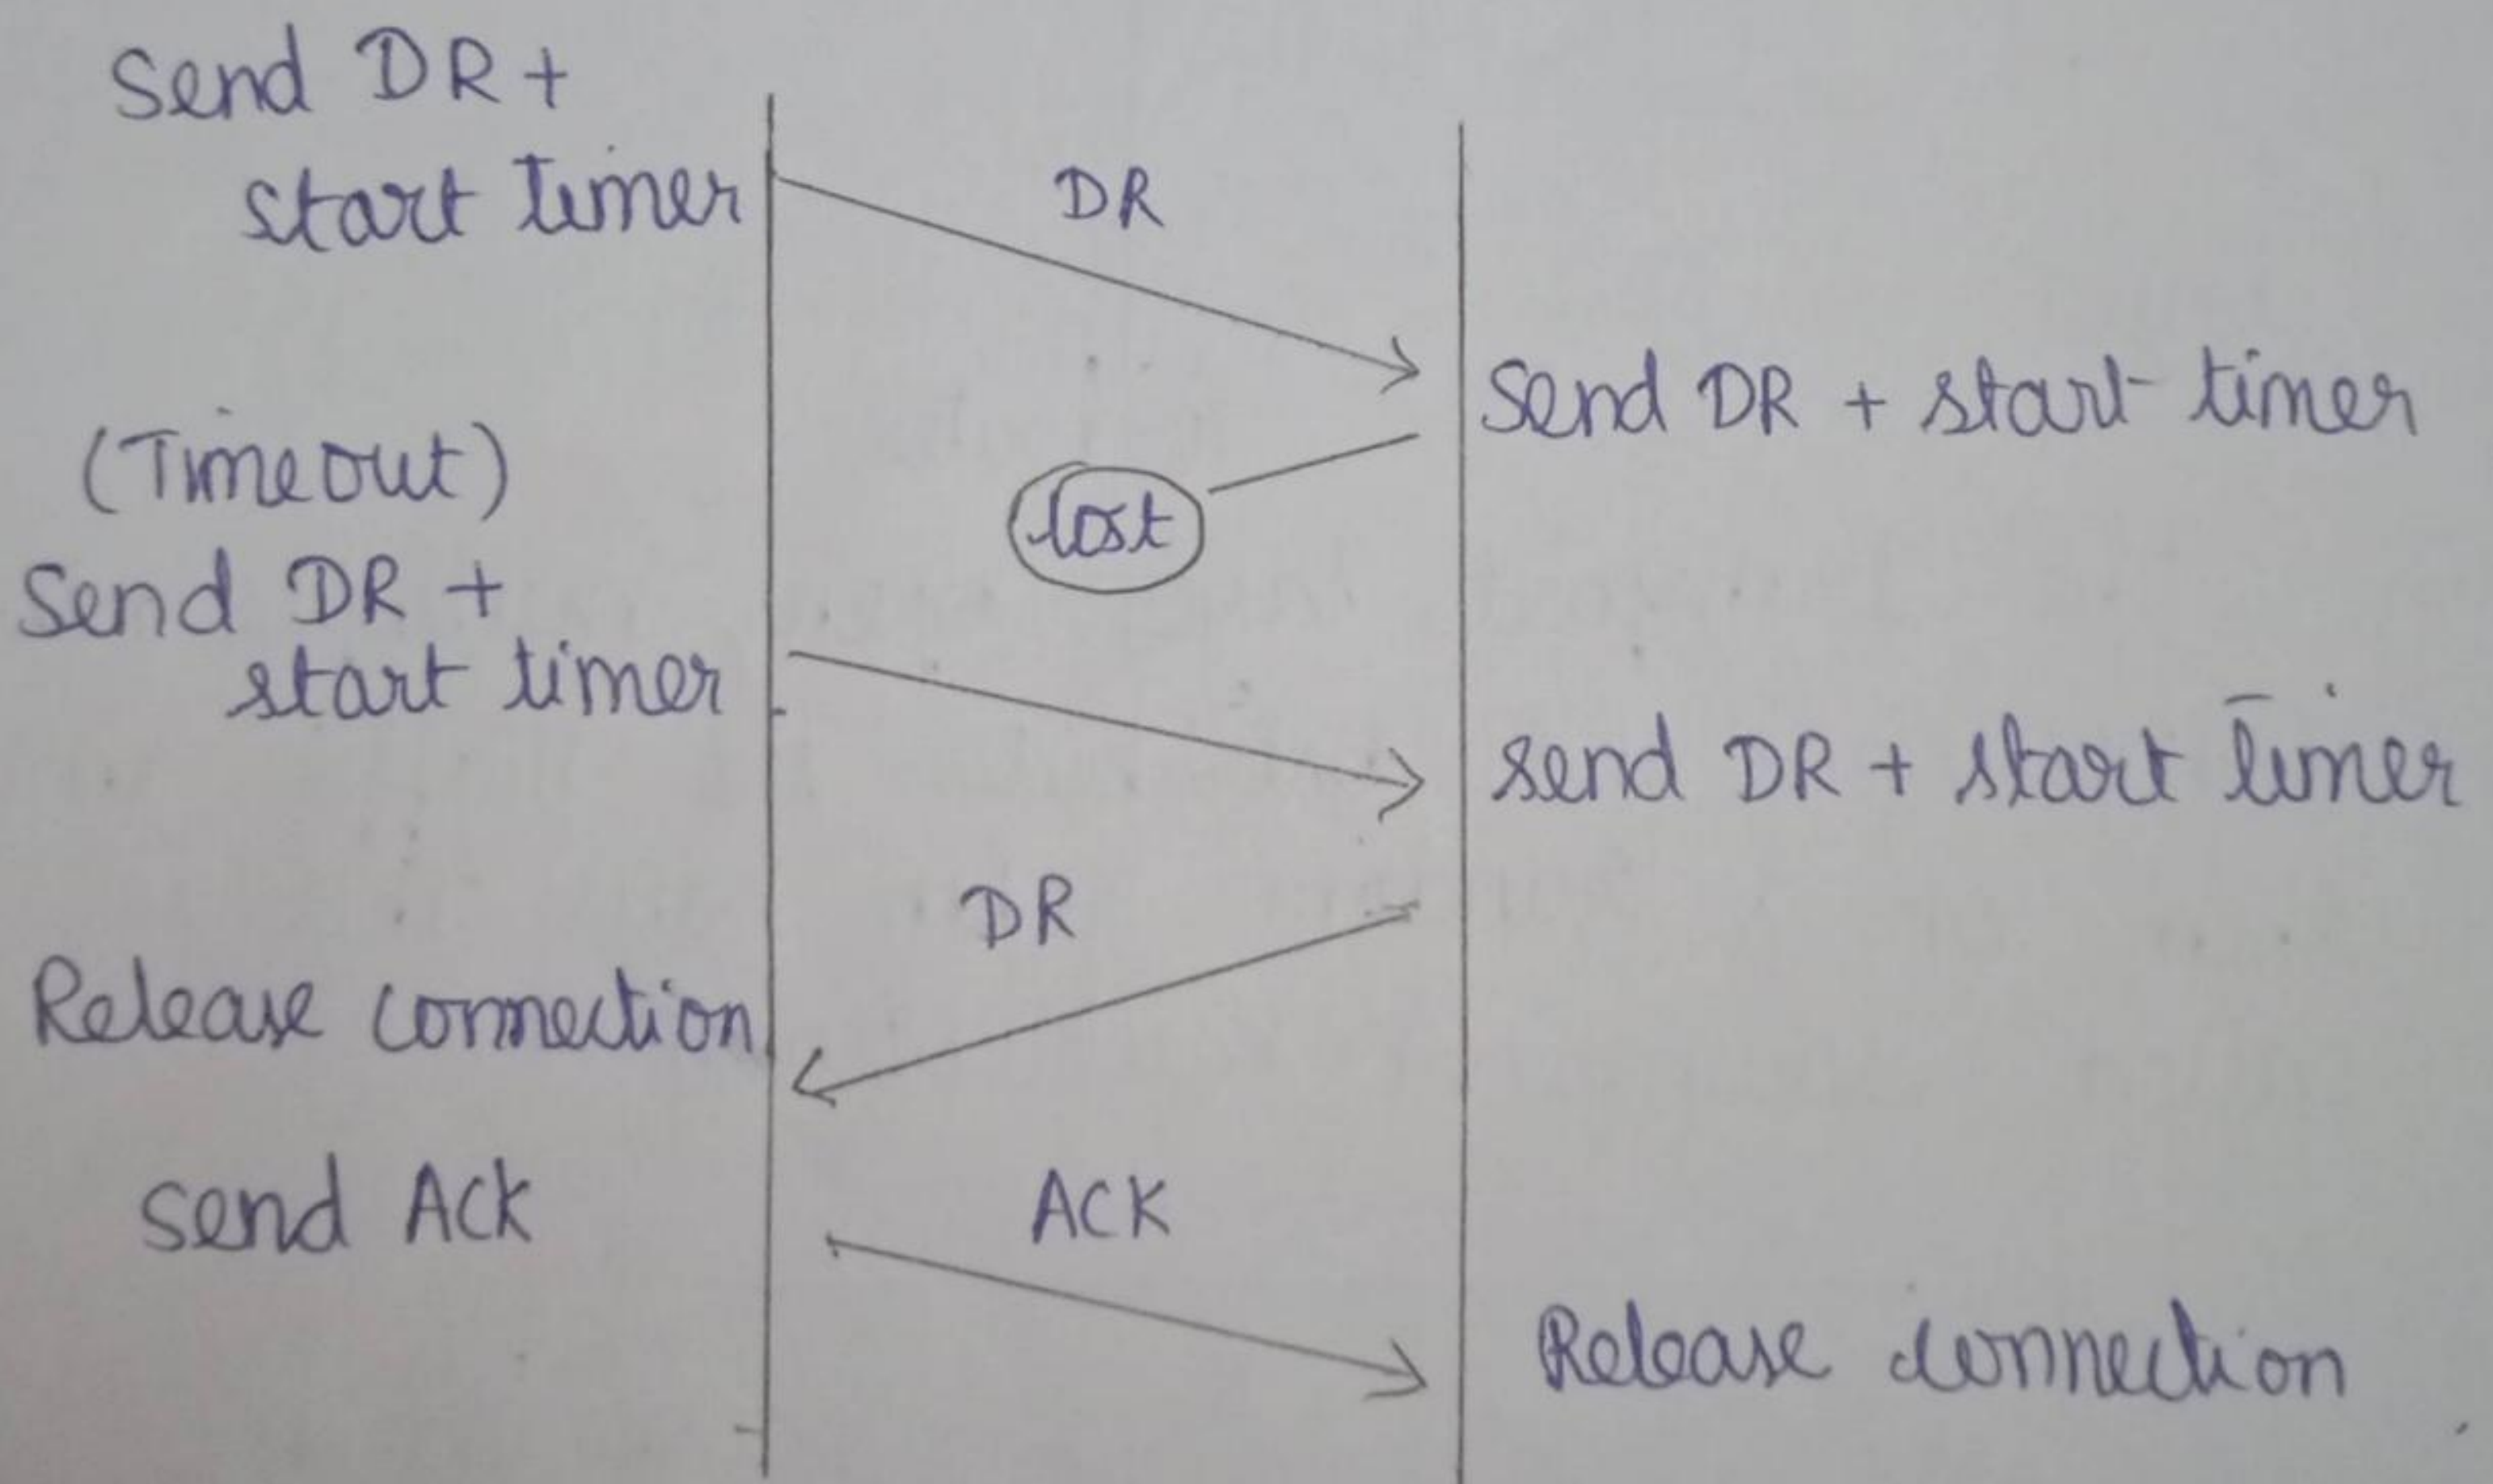 Send DR +
start timer
DR
Send DR + start timer
(Timeout)
lost
Send DR +
start timer
send DR + start timer
DR
Release connection
send Ack
ACK
Release connection